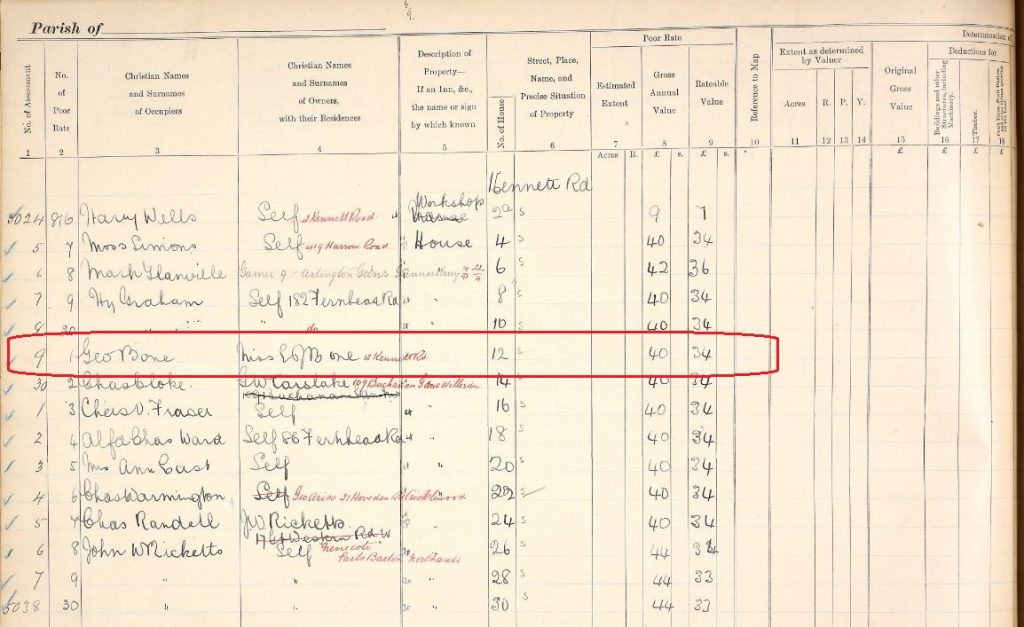 6/9.
Parish of
Poor Rate
Determination of
No. of Assessment
No. of Poor Rate
Christian Names and Surnames of Occupiers
Christian Names and Surnames of Owners, with their Residences
Description of Property— If an Inn, &c., the name or sign by which known
No. of House
Street, Place, Name, and Precise Situation of Property
Estimated Extent
Gross Annual Value
Rateable Value
Reference to Map
Extent as determined by Valuer
Acres R. P. Y.
Original Gross Value
Deductions for
Buildings and other Structures, including Machinery.
Timber.
1 2 3 4 5 6 7 8 9 10 11 12 13 14 15 16 17 18
Acres R. £ s. £ s. £ £ £ £
Kennett Rd
5024 816 Harry Wells Self 2 Kennett Road Workshop House 2a s 9 7
5 7 Moss Simons Self 419 Harrow Road House 4 s 40 34
6 8 Mark Glanville Arlington Gdns 6 s 42 36
7 9 Hy Graham Self 182 Fernhead Rd " 8 s 40 34
20 " do " 10 s 40 34
9 1 Geo Bone Miss Bone 12 Kennett Rd 12 s 40 34
30 2 Chas Cloke G W Carslake 109 Buchanan Gdns Willesden " 14 40 34
1 3 Fraser Self " 16 s 40 34
2 4 Alf Chas Ward Self 86 Fernhead Rd " 18 s 40 34
3 5 Mrs Ann Cast Self " 20 s 40 34
4 6 Chas Warmington Self Geo Aries 21 Hoveden Rd Cricklewood 22 s 40 34
5 7 Chas Randall J W Ricketts " 24 s 40 34
Western Rd W
6 8 John W Ricketts Self Earls Barton Northants " 26 s 44
7 9 " " " 28 s 44 33
5038 30 " " " 30 s 44 33